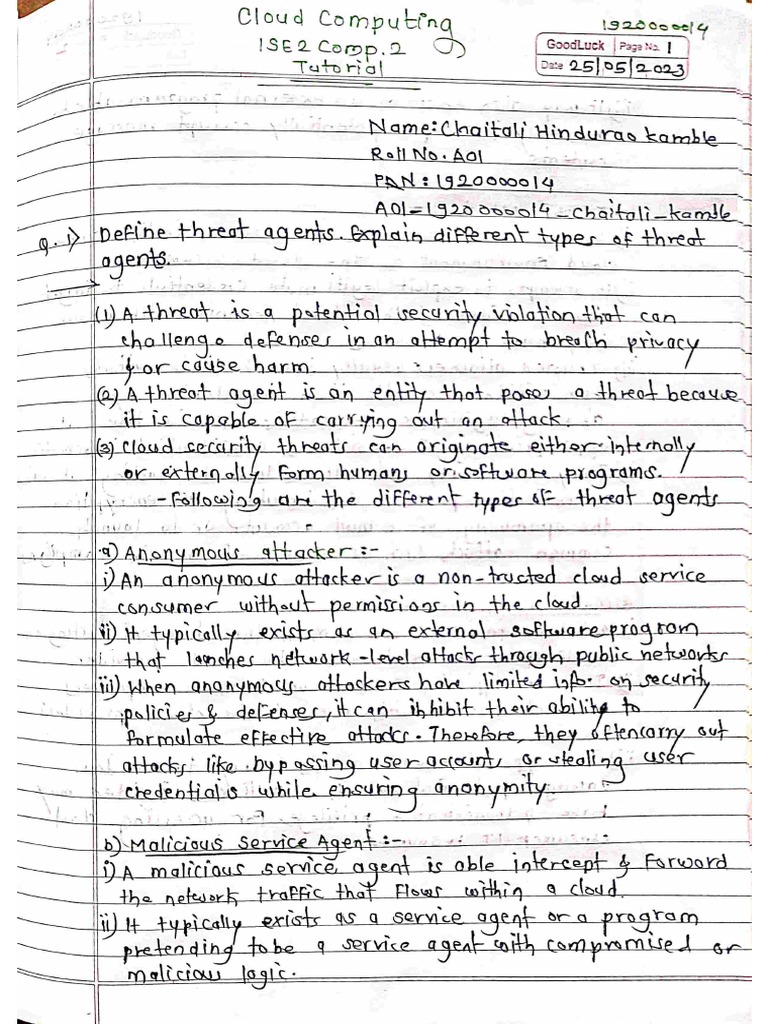 Cloud Computing
1920000014
ISE2 Comp. 2
GoodLuck Page No. 1
Tutorial
Date 25/05/2023
Name: Chaitali Hindurao Kamble
Roll No. A01
PAN: 1920000014
A01-1920000014-Chaitali-kamble
Q. 1) Define threat agents. Explain different types of threat
agents.
(1) A threat is a potential security violation that can
challenge defenses in an attempt to breach privacy
& or cause harm.
(2) A threat agent is an entity that poses a threat because
it is capable of carrying out an attack.
(3) Cloud security threats can originate either internally
or externally form humans or software programs.
- Following are the different types of threat agents
a) Anonymous attacker :-
i) An anonymous attacker is a non-trusted cloud service
consumer without permissions in the cloud.
ii) It typically exists as an external software program
that launches network-level attacks through public networks
iii) When anonymous attackers have limited info. on security
policies & defenses, it can inhibit their ability to
formulate effective attacks. Therefore, they often carry out
attacks like bypassing user accounts or stealing user
credentials while ensuring anonymity.
b) Malicious Service Agent :-
i) A malicious service agent is able intercept & forward
the network traffic that flows within a cloud.
ii) It typically exists as a service agent or a program
pretending to be a service agent with compromised or
malicious logic.